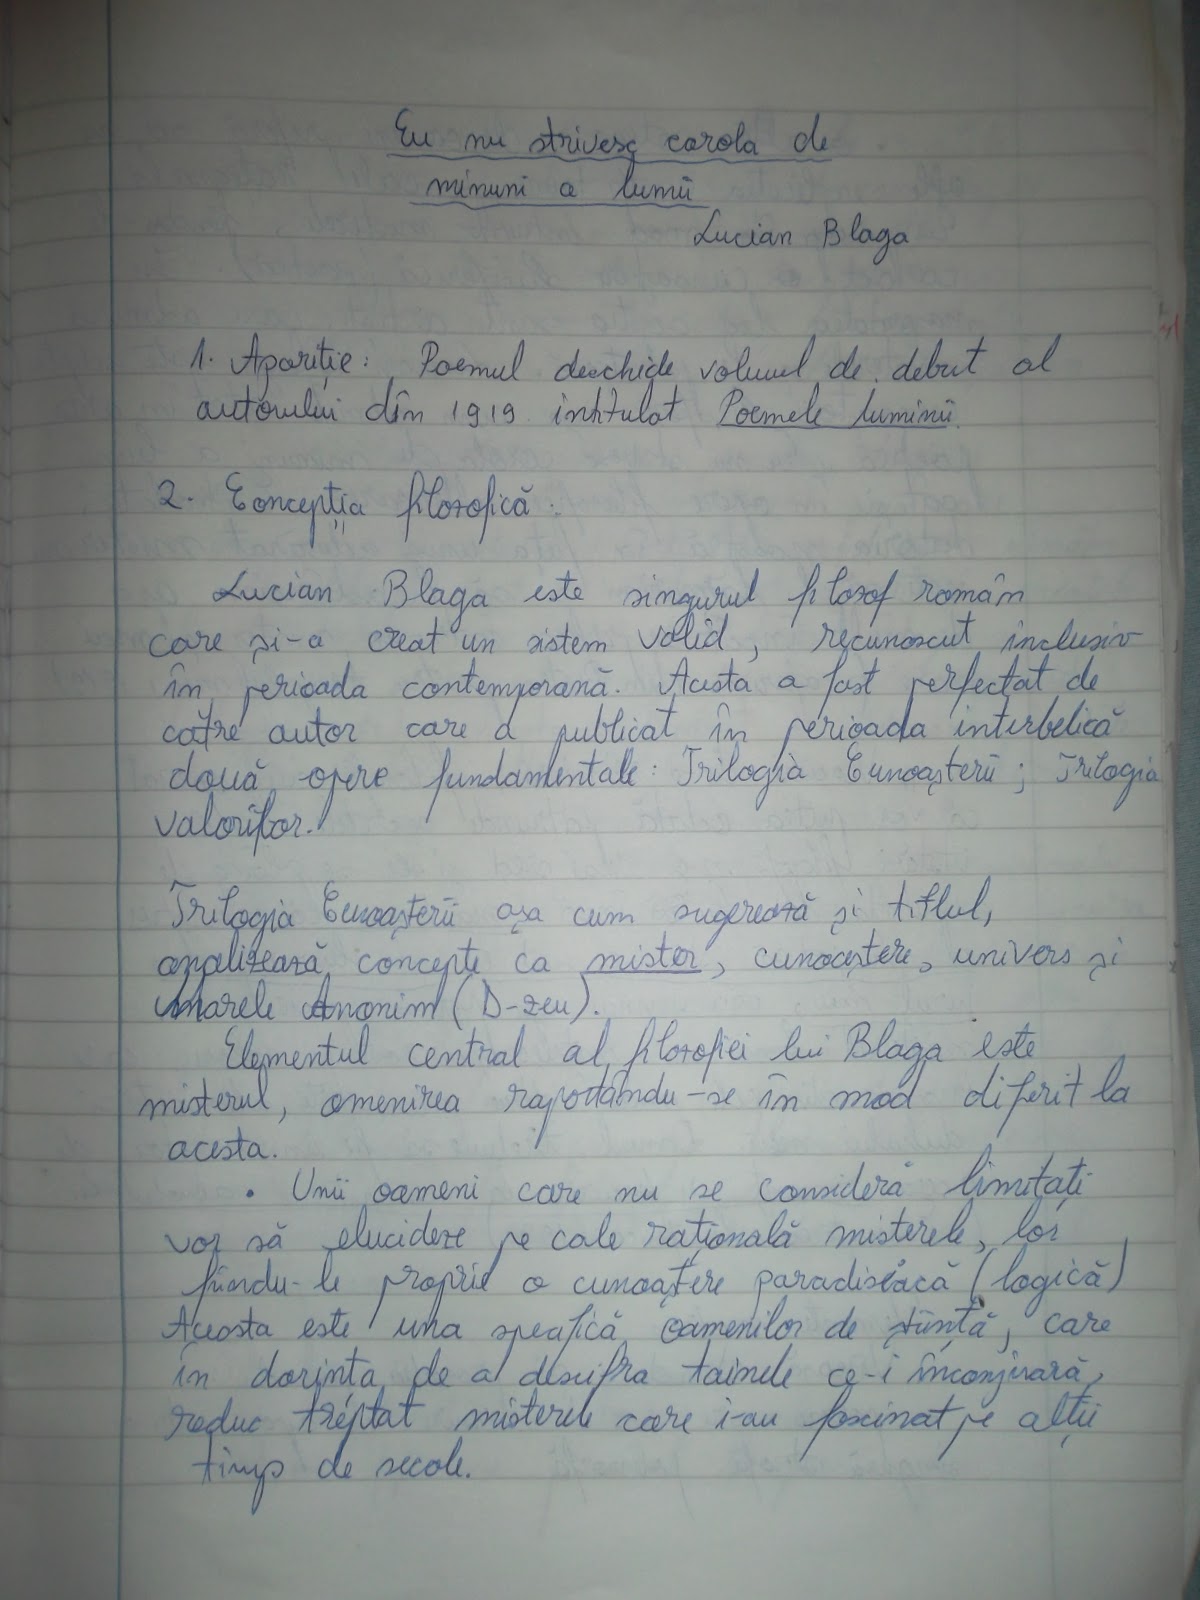 Eu nu strivesc corola de
minuni a lumii
Lucian Blaga
1. Apariție: Poemul deschide volumul de debut al
autorului din 1919 intitulat Poemele luminii.
2. Concepția filozofică:
Lucian Blaga este singurul filozof român
care și-a creat un sistem valid, recunoscut inclusiv
în perioada contemporană. Acesta a fost perfectat de
către autor care a publicat în perioada interbelică
două opere fundamentale: Trilogia Cunoașterii; Trilogia
valorilor.
Trilogia Cunoașterii așa cum sugerează și titlul,
analizează concepte ca mister, cunoaștere, univers și
Marele Anonim (D-zeu).
Elementul central al filozofiei lui Blaga este
misterul, omenirea raportându-se în mod diferit la
acesta.
• Unii oameni care nu se consideră limitați
vor să elucideze pe cale rațională misterele, lor
fiindu-le proprie o cunoaștere paradisiacă (logică)
Aceasta este una specifică oamenilor de știință, care
în dorința de a descifra tainele ce-i înconjoară,
reduc treptat misterele care i-au fascinat pe alții
timp de secole.